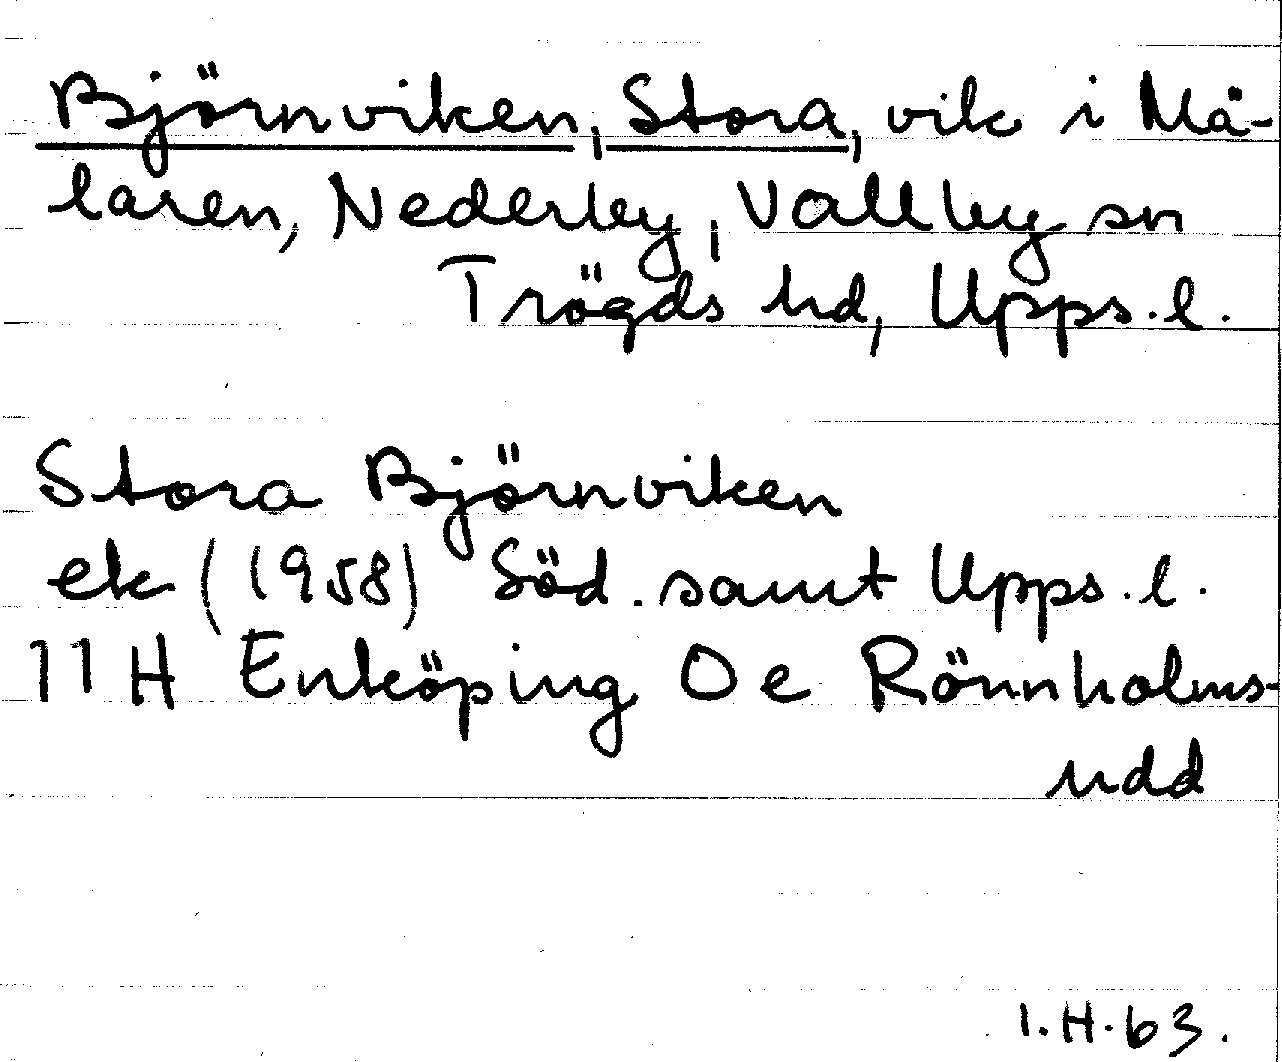 Björnviken, Stora, vik i Mä-
laren, Nederby, Vallby sn
Trögds hd, Upps.l.
Stora Björnviken
ek (1958) Söd. samt Upps.l.
11 H Enköping Oe Rönnholms-
udd
I.H.63.